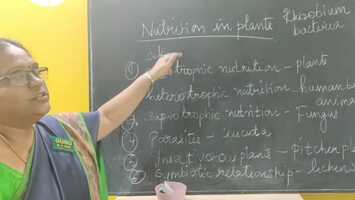 Nutrition in plants
Rhizobium
bacteria
trophic nutrition - plants
heterotrophic nutrition - human
anim
Saprotrophic nutrition - Fungus
Parasites - cuscuta
Insectivorous plants - Pitcher pl
Symbiotic relationship - lichens